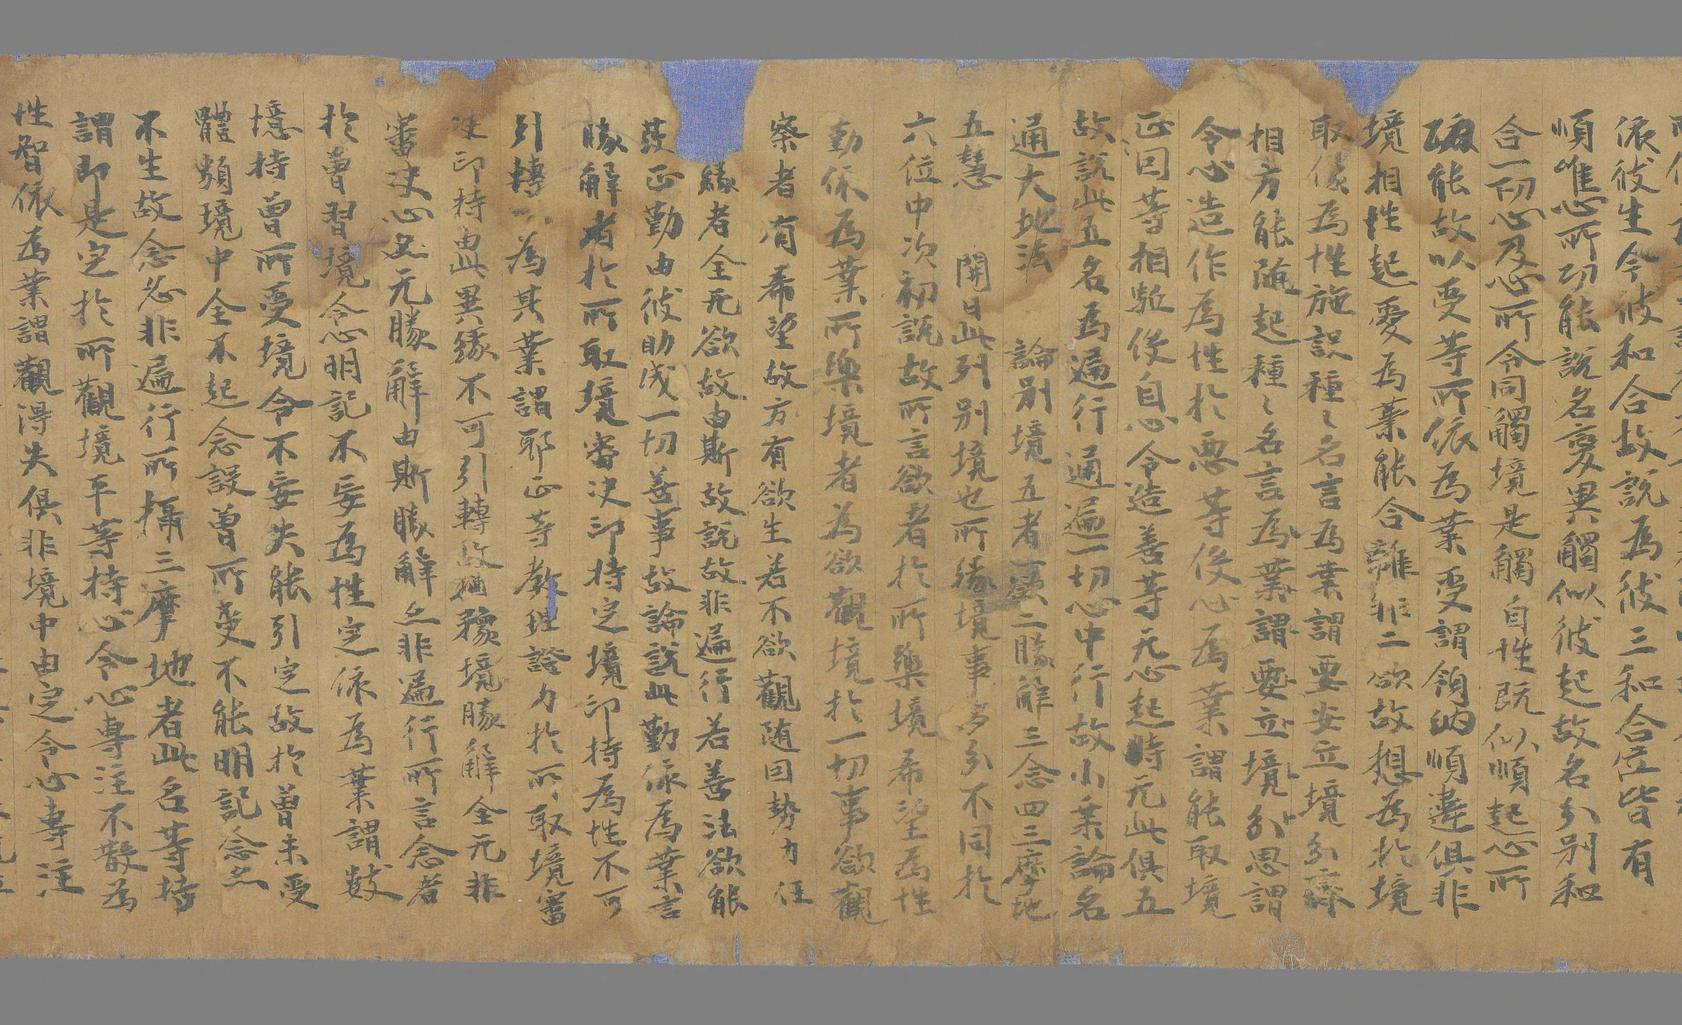 依彼生令彼和合故說為彼三和合位皆有
順唯心所功能說名變異觸似彼起故名分別和
合一切心及心所令同觸境是觸自性既似順起心所
能故以受等所依為業受謂領納順違俱非
境相性起愛為業能合離非二欲故想為於境
取像為性施設種〻名言為業謂要安立境分齊
相方能隨起種〻名言為業謂要立境分思謂
令心造作為性於惡等伇心為業謂能取境
正因等相駈伇自心令造善等无心起時无此俱五
故說此五名為遍行通遍一切心中行故小乘論名
通大地法 論別境五者一欲二勝解三念四三摩地
五慧 開曰此列別境也所緣境事多分不同於
六位中次初說故所言欲者於所樂境希望為性
勤依為業所樂境者為欲觀境於一切事欲觀
察者有希望故方有欲生若不欲觀随因勢力任
緣者全无欲故由斯故說故非遍行若善法欲能
發正勤由彼助成一切善事故論說此勤依為業言
勝解者於所取境審决印持定境印持為性不可
引轉以為其業謂耶正等教理證力於所取境審
决印持由此異緣不可引轉故猶豫境勝解全无非
審决心亦无勝解由斯勝解亦非遍行所言念者
於曾習境令心明記不妄為性定依為業謂數
憶持曾所受境令不妄失能引定故於曾未受
體類境中全不起念設曾所受不能明記念亦
不生故念必非遍行所攝三摩地者此名等持
謂即是定於所觀境平等持心令心專注不散為
性智依為業謂觀得失俱非境中由定令心專注